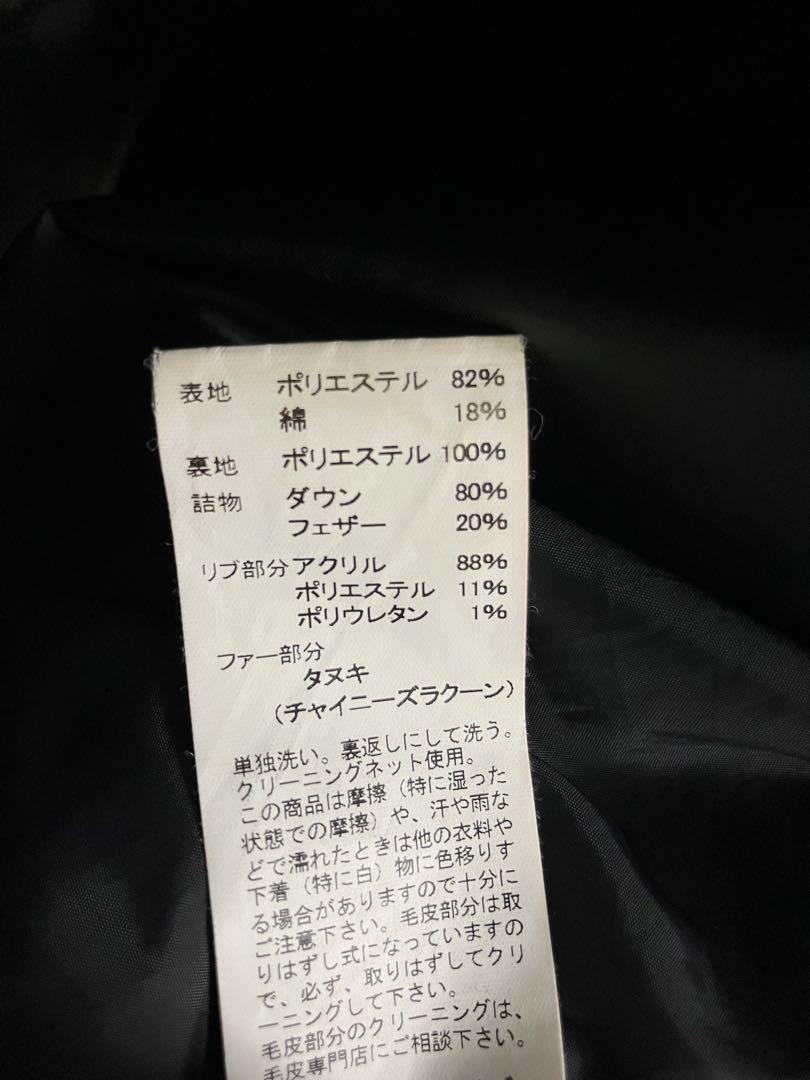 表地 ポリエステル 82%
綿 18%
裏地 ポリエステル 100%
詰物 ダウン 80%
フェザー 20%
リブ部分 アクリル 88%
ポリエステル 11%
ポリウレタン 1%
ファー部分
タヌキ
(チャイニーズラクーン)
単独洗い。裏返しにして洗う。
クリーニングネット使用。
この商品は摩擦(特に湿った
状態での摩擦)や、汗や雨な
どで濡れたときは他の衣料や
下着(特に白)物に色移りす
る場合がありますので十分に
ご注意下さい。毛皮部分は取
りはずし式になっていますの
で、必ず、取りはずしてクリ
ーニングして下さい。
毛皮部分のクリーニングは、
毛皮専門店にご相談下さい。